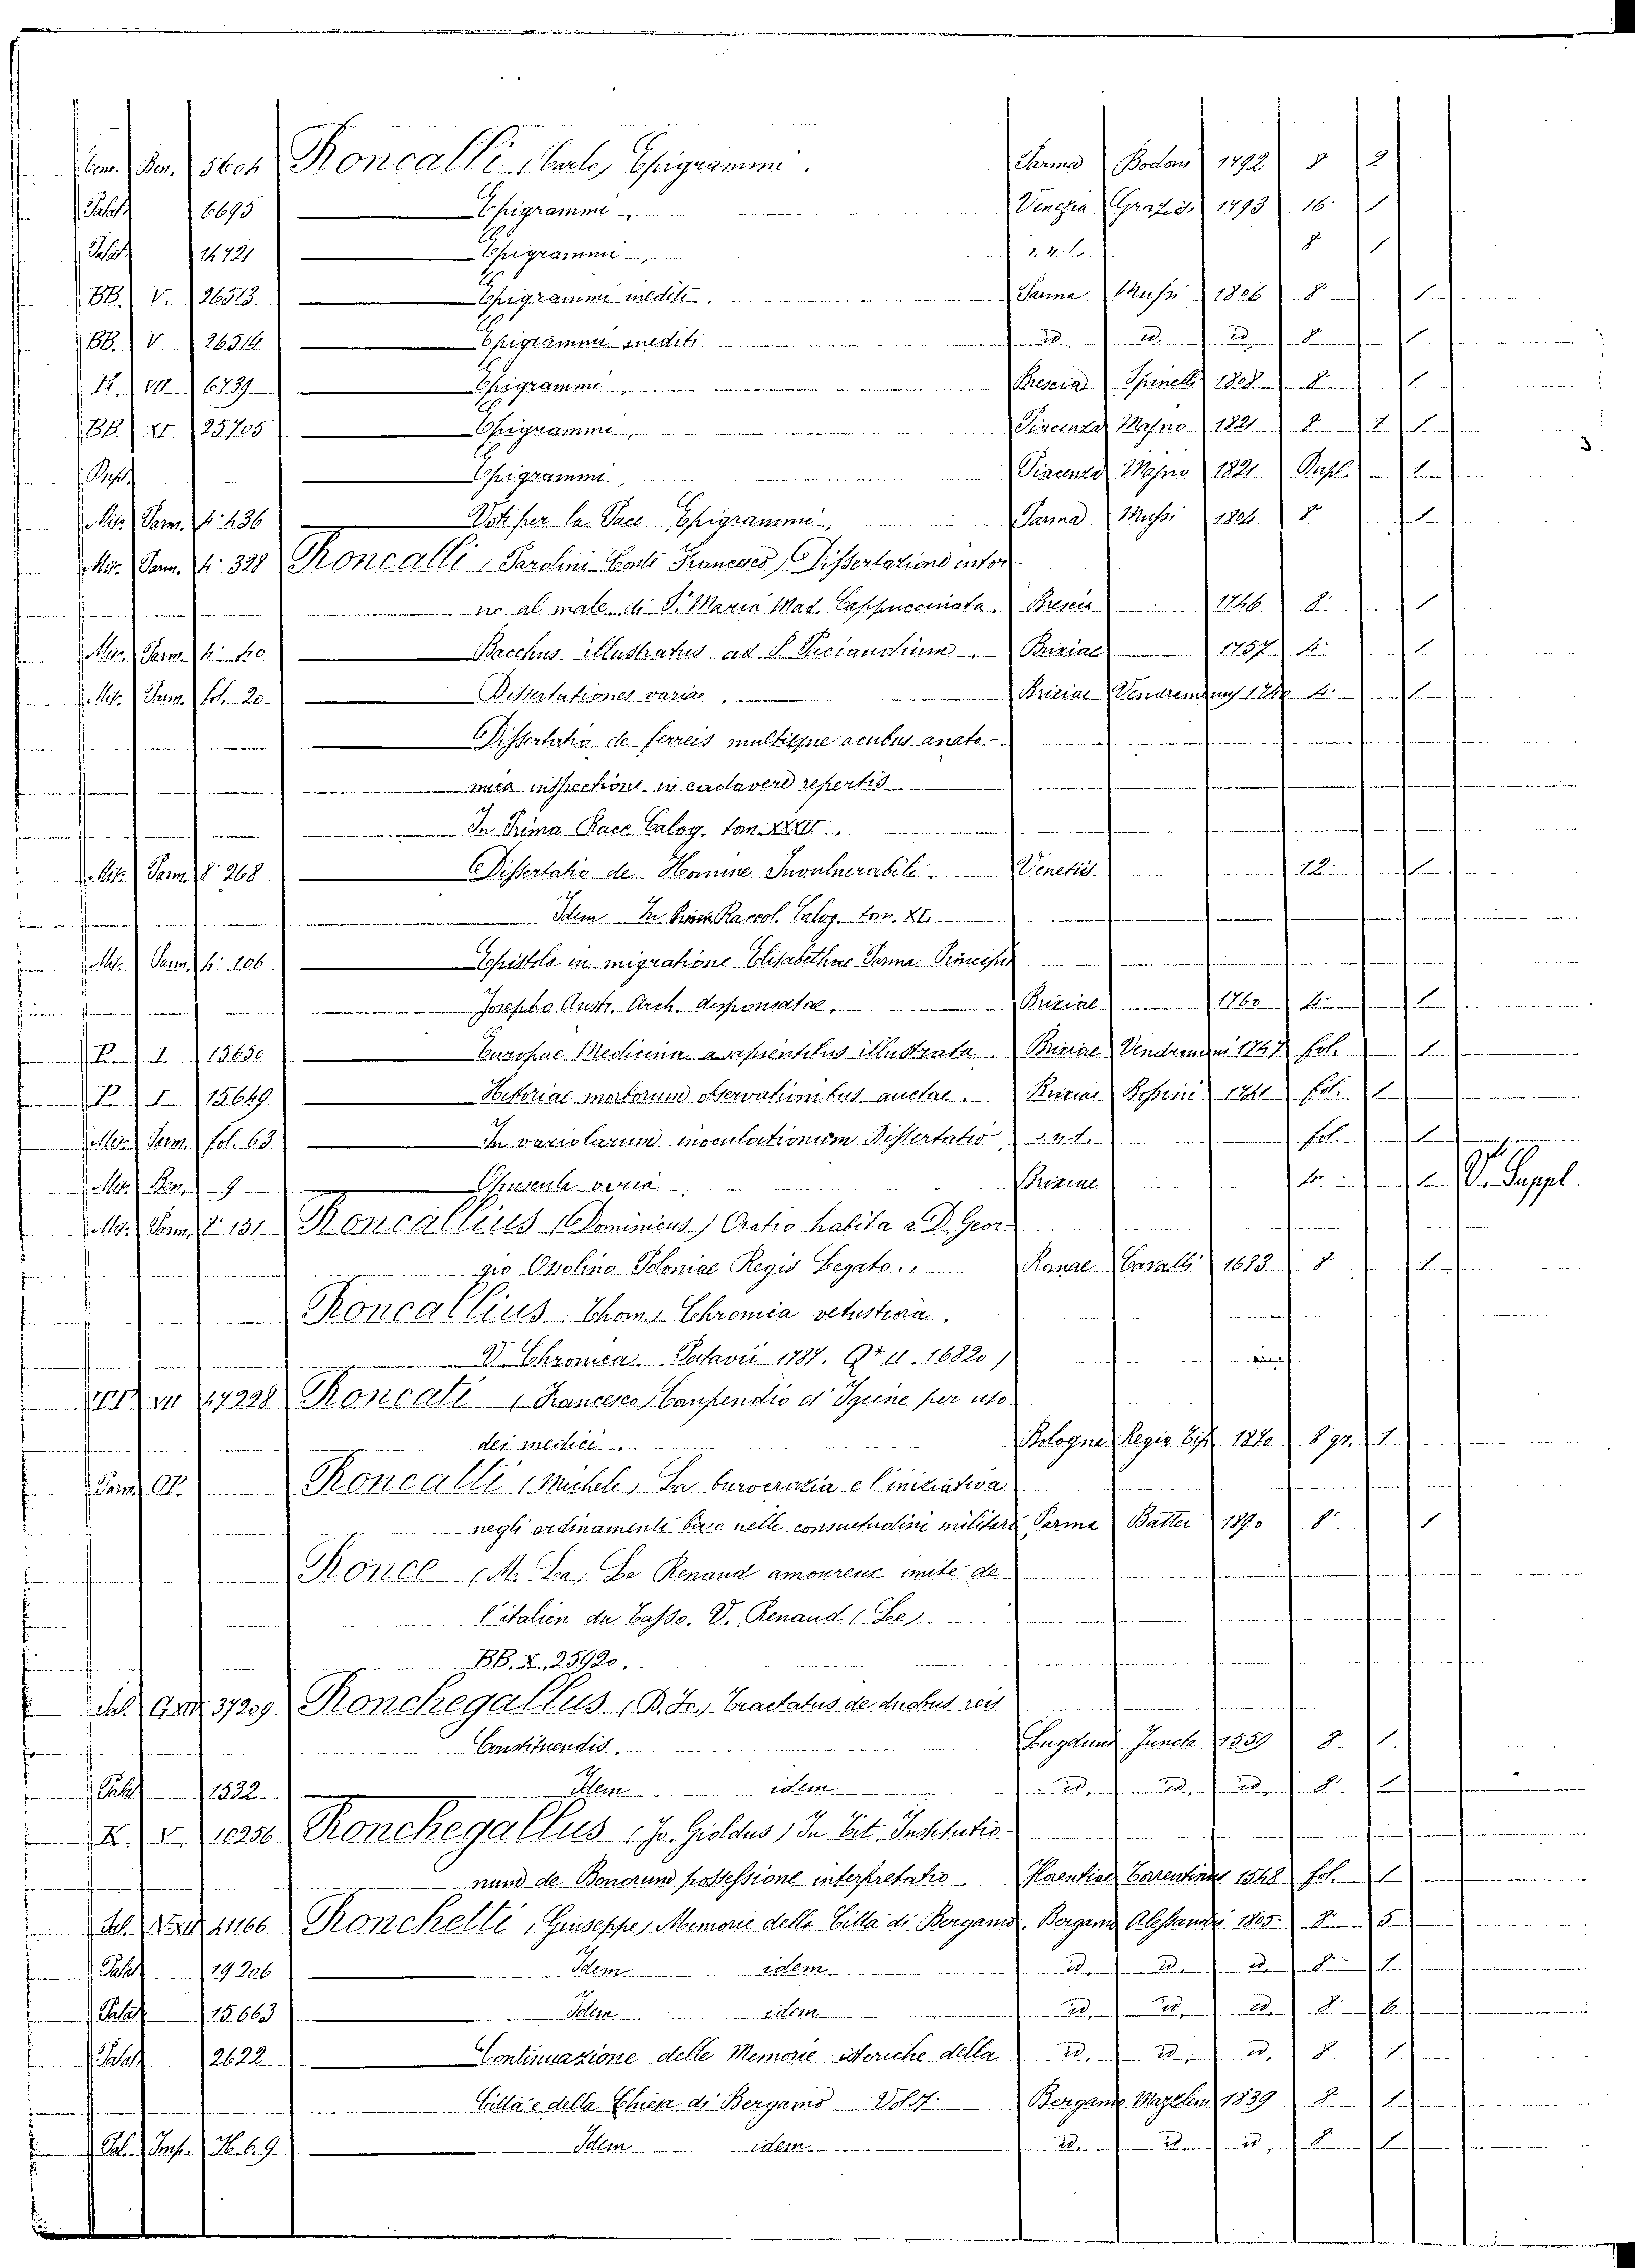 Roncalli, Carlo, Epigrammi. Parma Bodoni 1792 8 2
Palat. 6695 Epigrammi Venezia Graziosi 1793 16. 1
Palat. 14721 Epigrammi s. n. t. 8 1
BB. V. 26513 Epigrammi inediti. Parma Mussi 1806 8. 1
BB. V 26514 Epigrammi inediti id. id. id. 8 1
6739 Epigrammi Brescia Spinelli 1808 8 1
BB. XI. 25705 Epigrammi Piacenza Majno 1821 8 1
Epigrammi Piacenza Majno 1821 1
Misc. Parm. 4°. 436 Voti per la Pace Epigrammi, Parma Mussi 1801 8 1
Mis. Parm. 4°. 328 Roncalli, Parolini Conte Francesco, Dissertazione intor
no al male di S. Maria Mad. Cappuccinata. Brescia 1746 8. 1
Misc. Parm. 4°. 40 Bacchus illustratus ad S. Brixiae 1757 4. 1
Mis. Parm. fol. 20. Dissertationes variae, Brixiae 4. 1
Dissertatio de ferreis multisque acubus anato-
mica inspectione in cadavere repertis
In Prima Racc. Calog. tom. XXXII.
Misc. Parm. 8°. 268 Dissertatio de Homine Invulnerabili. Venetiis. 12. 1
Idem In Prima Raccol. Calog. tom. XL
Misc. Parm. 4°. 106 Epistola in migratione Elisabethae Parmae Principis
Josepho Austr. Arch. desponsatae, Brixiae 1760 4. 1
P. I. 15650 Europae Medicina a sapientibus illustrata. Brixiae Vendramini 1747 fol. 1
P. I. 15649 Historiae morborum observationibus auctae. Brixiae 1741 fol. 1
Misc. Parm. fol. 63 In variolarum inoculationem Dissertatio s. n. t. fol. 1
9 Opuscula varia Brixiae 4. 1 V. Suppl.
Misc. Parm. 8°. 131 Roncallius (Dominicus) Oratio habita a D. Geor-
gio Ossolino Poloniae Regis Legato.. Romae 1633 8 1
Roncallius, Thom., Chronica vetustiora.
V. Chronica Patavii 1787. 16820)
17228 Roncati (Francesco) Compendio d' Igiene per uso
dei medici Bologna Regia Tip. 1870 8. gr. 1
Parm. Roncatti (Michele) La burocrazia e l'iniziativa
negli ordinamenti e nelle consuetudini militari Parma Battei 1890 8. 1
Ronce (M. La) Le Renaud amoureux imité de
l'italien du Tasso. V. Renaud (Le)
BB. X. 25920.
37209 Ronchegallus (B. Jo.) Tractatus de duobus reis
Constituendis, Lugduni Juncta 1559 8. 1
Palat 1532 Idem idem id. id. id. 8. 1
V. 10256 Ronchegallus (Jo. Gioldus) In tit. Institutio
num de Bonorum possessione interpretatio Florentiae Torrentinus 1548 fol. 1
41166 Ronchetti, Giuseppe, Memorie della Città di Bergamo. Bergamo Alessandri 1805 8. 5
Palat. 19206 Idem idem id. id. id. 8 1
Palat. 15663 Idem idem id. id. id. 8 6
Palat. 2622 Continuazione delle Memorie istoriche della id. id. id. 8 1
Città e della Chiesa di Bergamo Bergamo 1839 8 1
Pal. 69 Idem idem id. id. id. 8 1